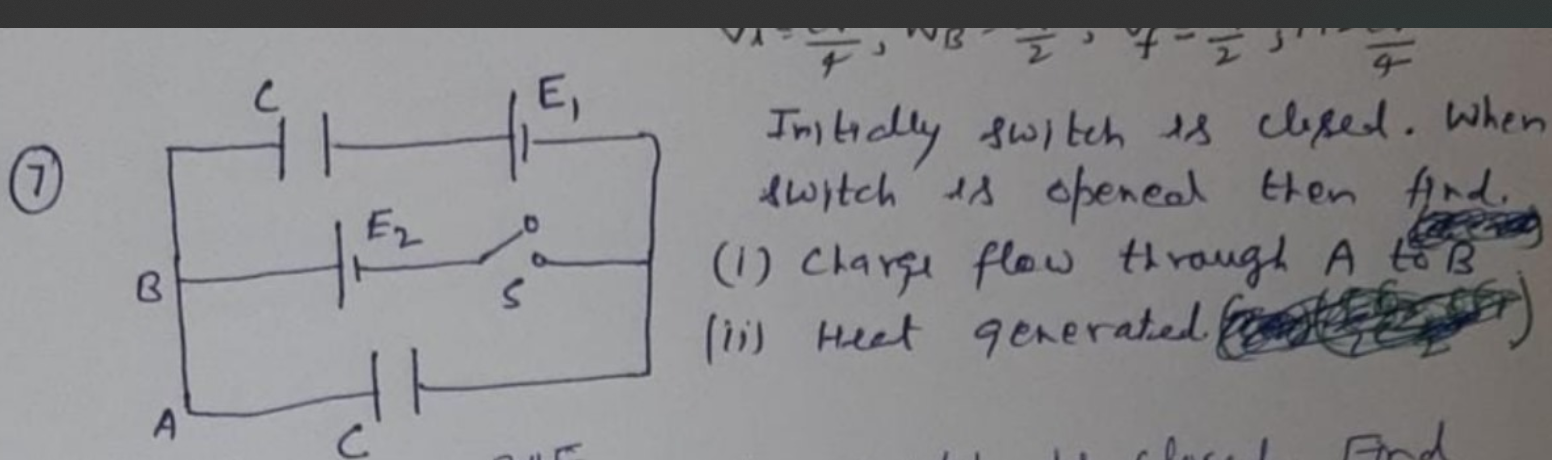 C
E1
7
Initially switch is closed. When
switch is opened then find.
E2
(i) Charge flow through A to B
B
S
(ii) Heat generated
A
C
Find